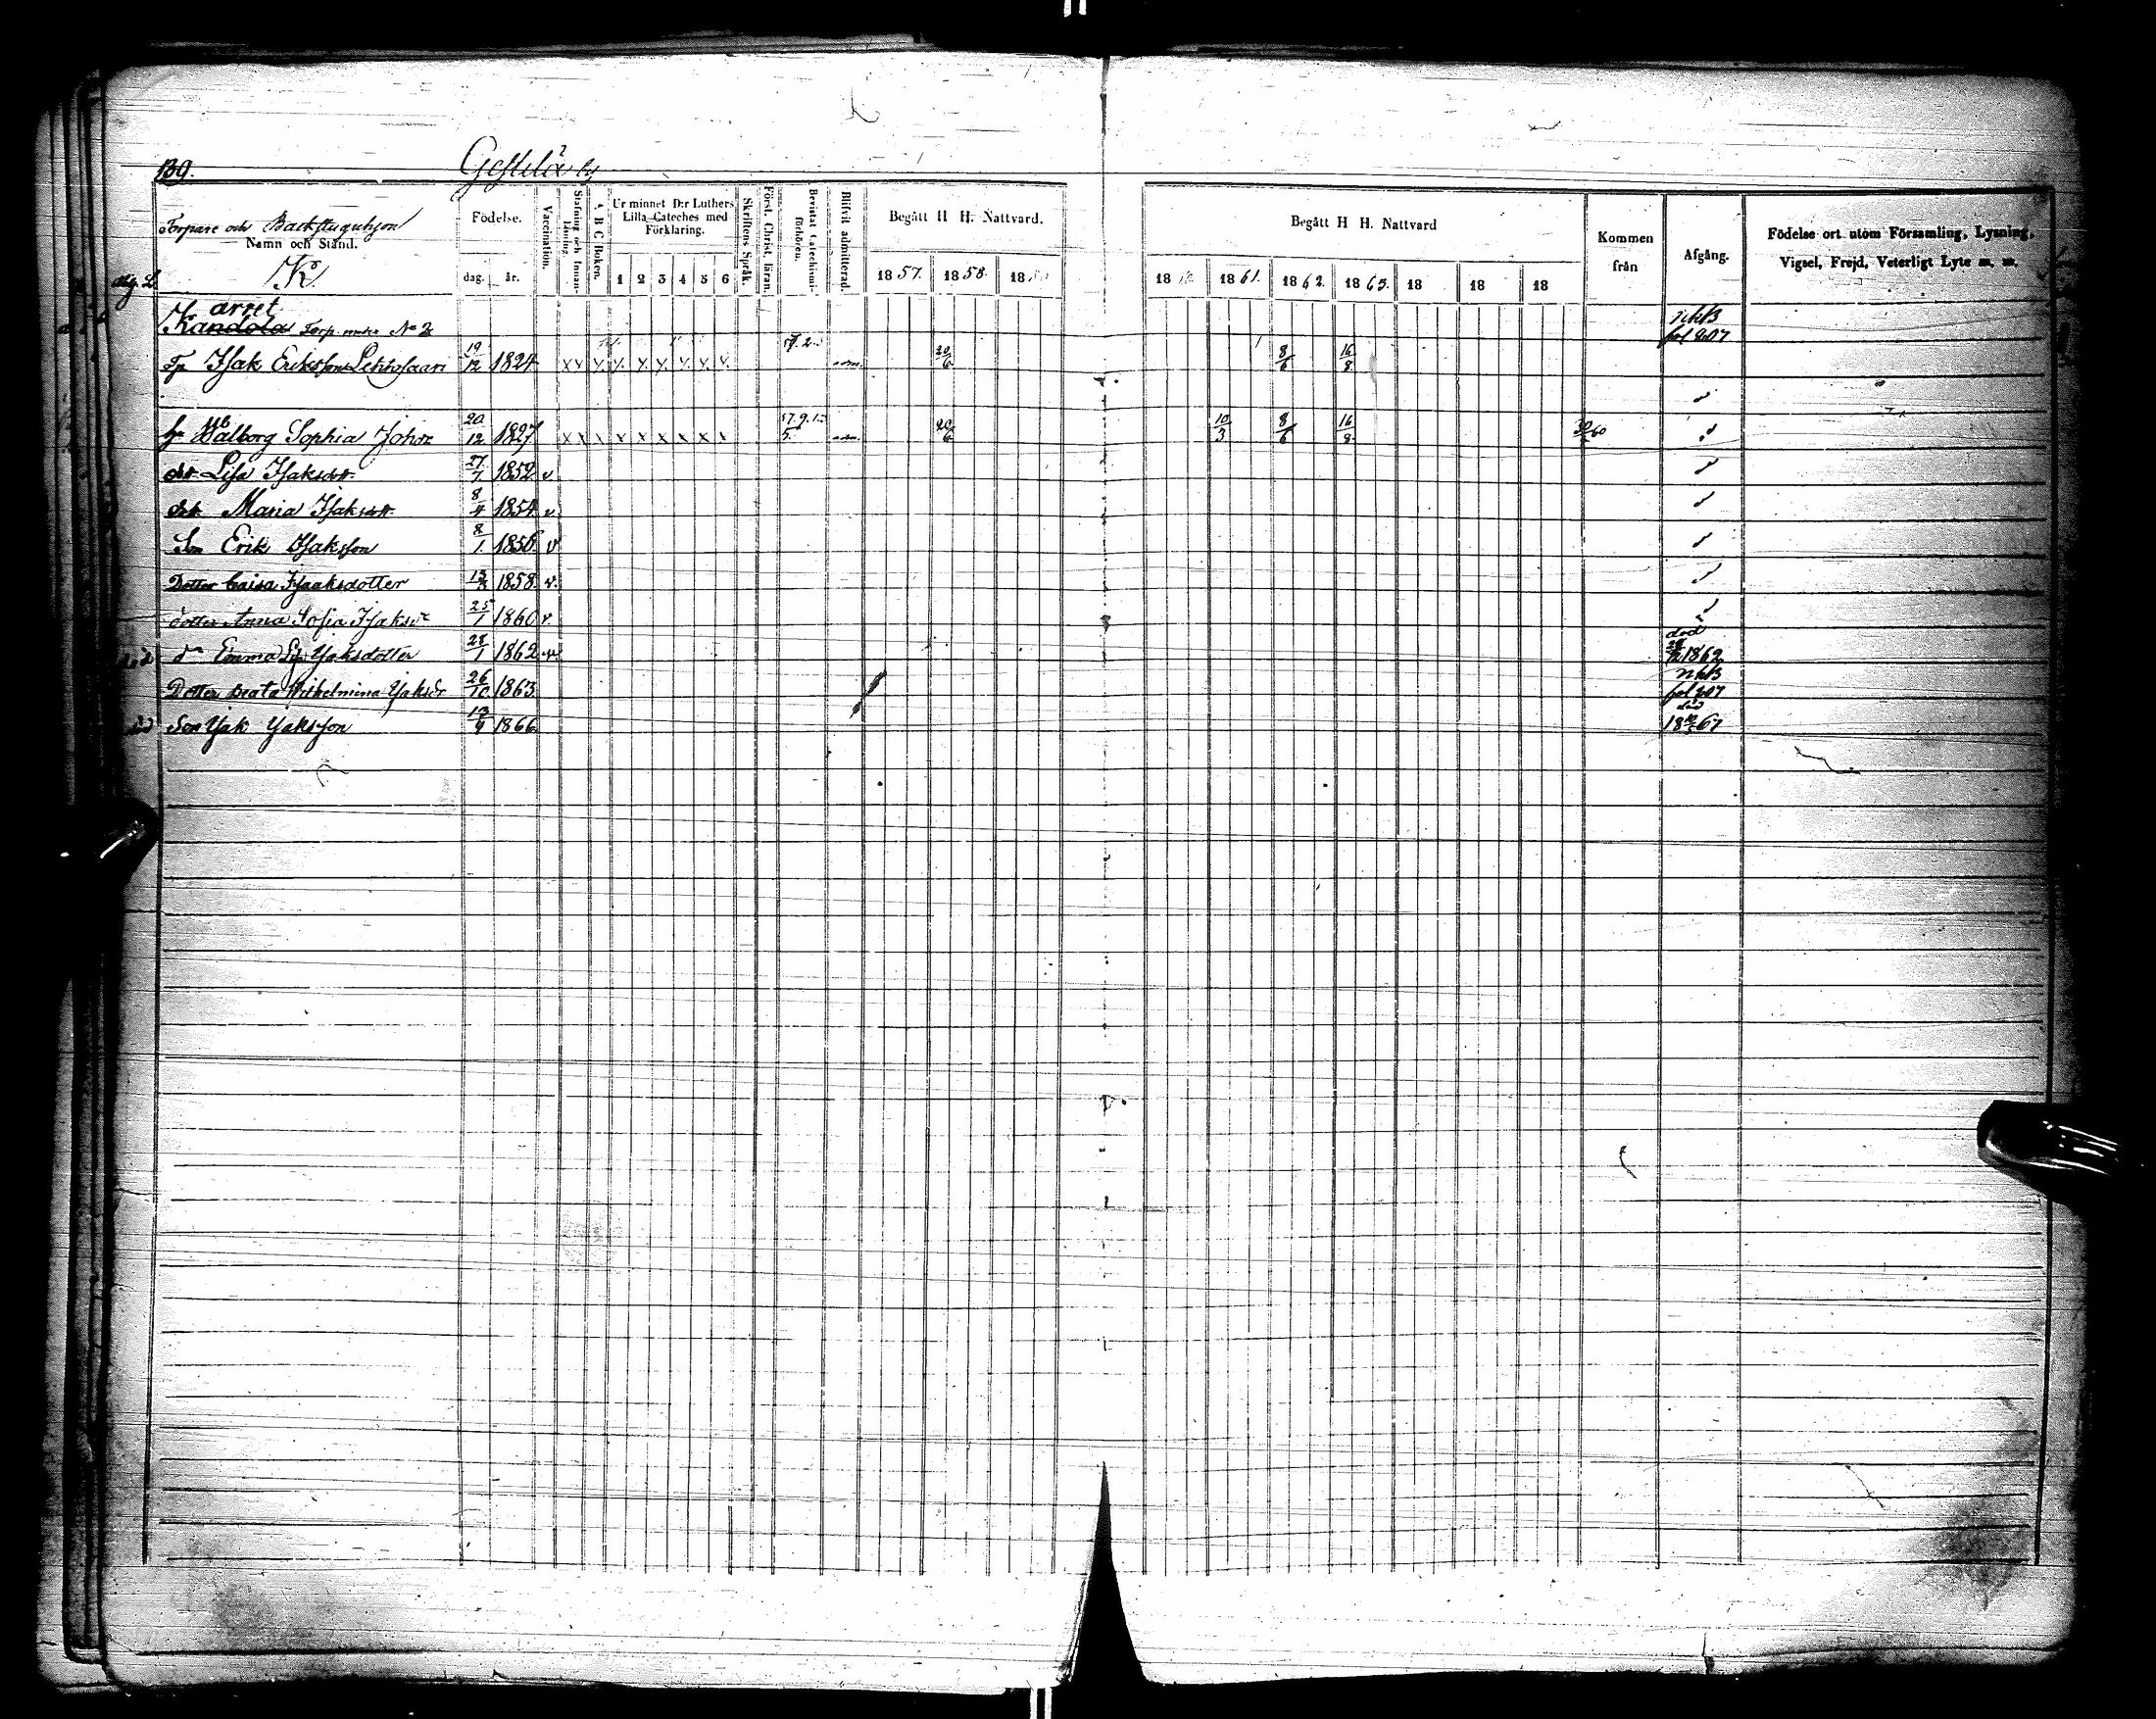 139. Gestilä by
Torpare och Backstuguhjon
Namn och Stånd.
Födelse.
dag. år.
Vaccination.
Stafning och Innanläsning.
A B C Boken.
Ur minnet D:r Luthers Lilla Cateches med Förklaring.
1 2 3 4 5 6
Skriftens Språk.
Först. Christ. läran.
Bevistat Catechismiförhören.
Blifvit admitterad.
Begått H H. Nattvard.
1857. 1858. 18
Begått H H. Nattvard
18 1861. 1862. 1863. 18 18 18
Kommen från
Afgång.
Födelse ort utom Församling, Lysning, Vigsel, Frejd, Veterligt Lyte m. m.
arret nkB
Kandola Torp No 2 fol 207
Tp Isak Eriksson 19/12 1824 x x x x x x x x x 20/6 8/6 16/8
h. Walborg Sophia Joh 20/12 1827 x x x x x x x x x 20/6 10/3 8/6 16/8 60
dtt Lisa Isaksdtt 27/7 1852 v
dtt Maria Isaksdtt 8/4 1854 v
Son Erik Isaksson 8/1 1856 v
Dotter Caisa Isaaksdotter 13/3 1858 v.
dotter Anna Sofia Isaksdr 25/1 1860 v.
Emma Isaksdotter 28/1 1862 v död 1862
Dotter Beata Wilhelmina Isaksdr 26/10 1863 nkB fol 207
Son Isak Isaksson 13/9 1866 död 1867